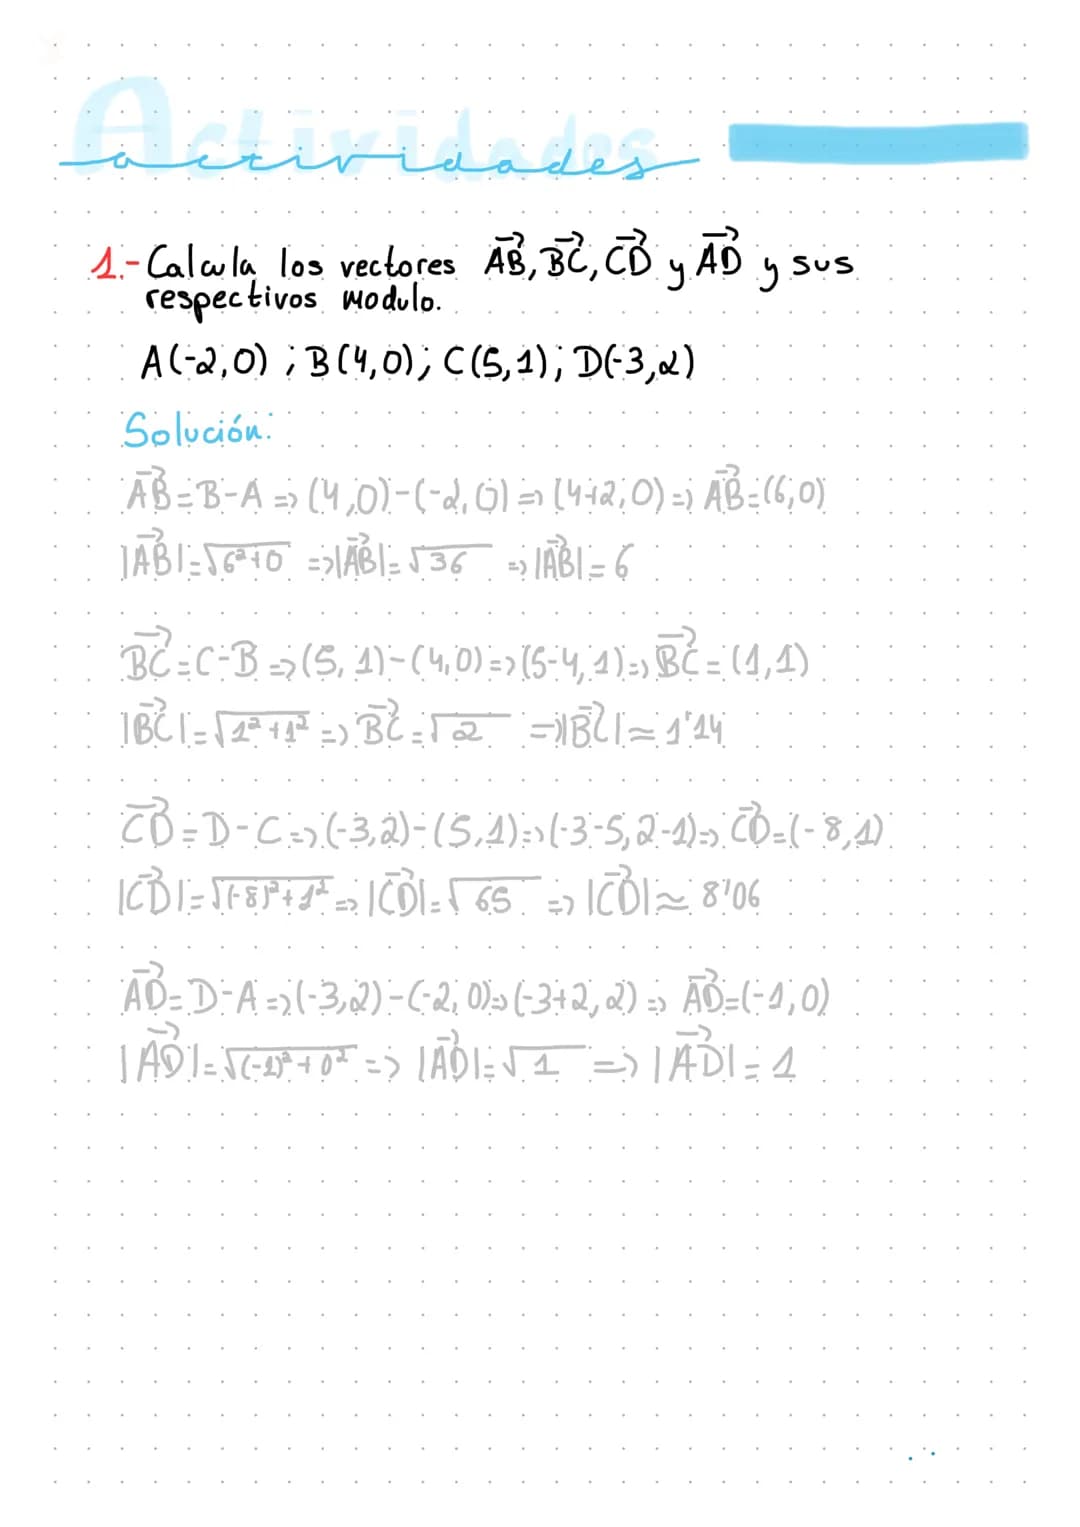 Actividades
actividades
1.- Calcula los vectores AB⃗, BC⃗, CD⃗ y AD⃗ y sus
respectivos modulo.
A(-2,0) ; B(4,0); C(5,1); D(-3,2)
Solución:
AB⃗=B-A => (4,0)-(-2,0) => (4+2,0) => AB⃗=(6,0)
|AB⃗|=√6²+0 => |AB⃗|=√36 => |AB⃗|=6
BC⃗=C-B => (5,1)-(4,0) => (5-4,1) => BC⃗=(1,1)
|BC⃗|=√1²+1² => BC⃗=√2 => |BC⃗|≃1'14
CD⃗=D-C => (-3,2)-(5,1) => (-3-5,2-1) => CD⃗=(-8,1)
|CD⃗|=√(-8)²+1² => |CD⃗|=√65 => |CD⃗|≃8'06
AD⃗=D-A => (-3,2)-(-2,0) => (-3+2,2) => AD⃗=(-1,0)
|AD⃗|=√(-1)²+0² => |AD⃗|=√1 => |AD⃗|=1